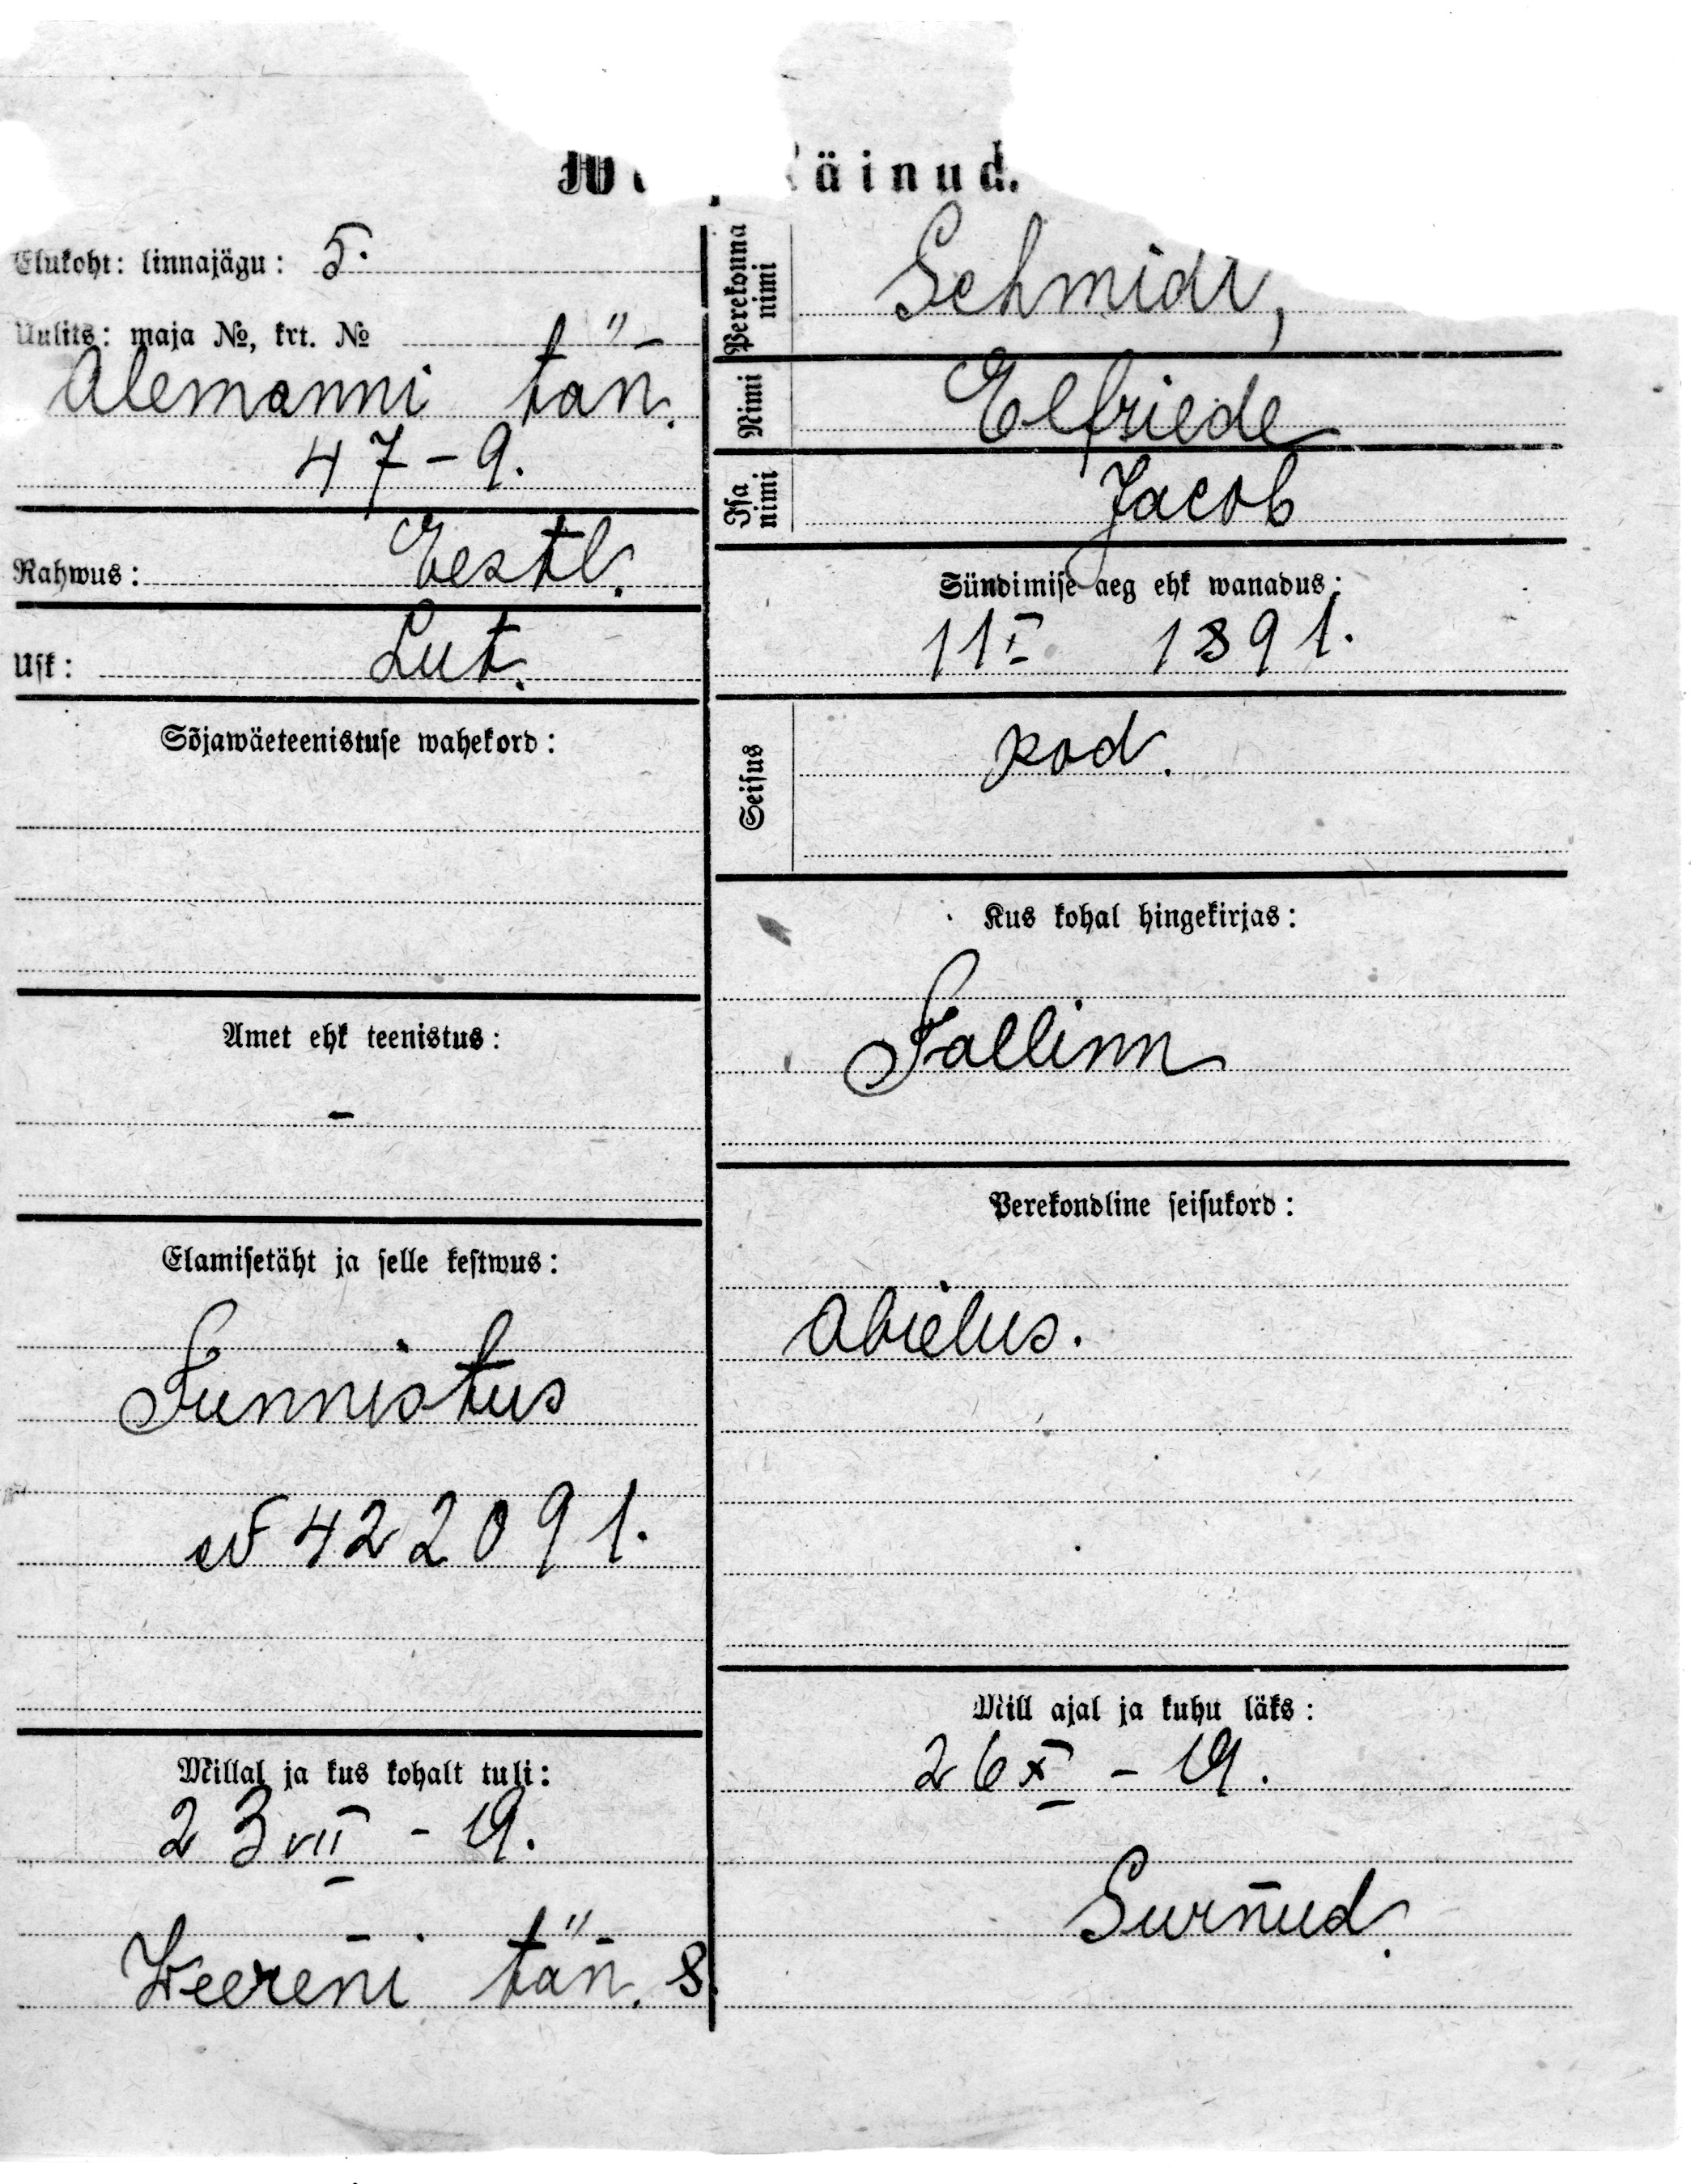 äinud.
Elukoht: linnajägu: 5.
Uulits: maja №, krt. №
Alemanni tän.
47-9.
Rahwus: Eestl.
Usk: Lut.
Sõjawäeteenistuse wahekord:
Amet ehk teenistus:
-
Elamisetäht ja selle kestwus:
Tunnistus
№ 422091.
Millal ja kus kohalt tuli:
23 VII - 19.
Weereni tän. 8
Perekonna nimi
Schmidt,
Nimi Elfriede
Isa nimi
Jacob
Sündimise aeg ehk wanadus:
11 I 1891.
Seisus kod.
Kus kohal hingekirjas:
Tallinn
Perekondline seisukord:
Abielus.
Mill ajal ja kuhu läks:
26 X - 19.
Surnud.